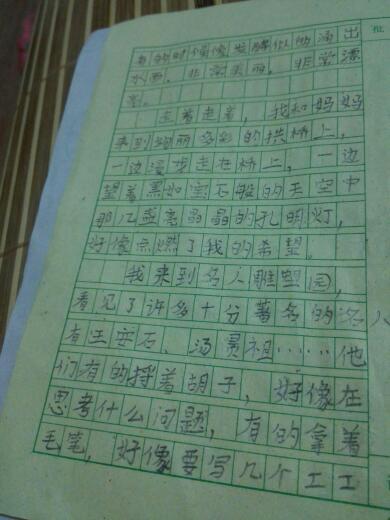 有的时候像发解似的涌出
水面,非常美丽,非常漂
亮。
走着走着,我和妈妈
来到绚丽多彩的拱桥上,
一边漫步走在桥上,一边
望着黑如宝石般的天空中
那几盏亮晶晶的孔明灯,
好像点燃了我的希望。
我来到名人雕塑园,
看见了许多十分著名的名
有王安石、汤显祖……他
们有的捋着胡子,好像在
思考什么问题,有的拿着
毛笔,好像要写几个工工
批
人